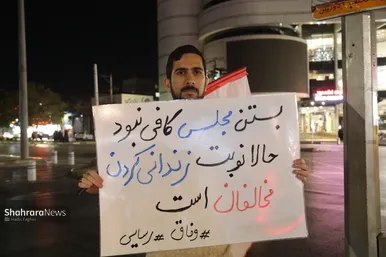 بستن مجلس کافی نبود
حالا نوبت زندانی کردن
مخالفان است
#وفاق #رسایی
ShahraraNews